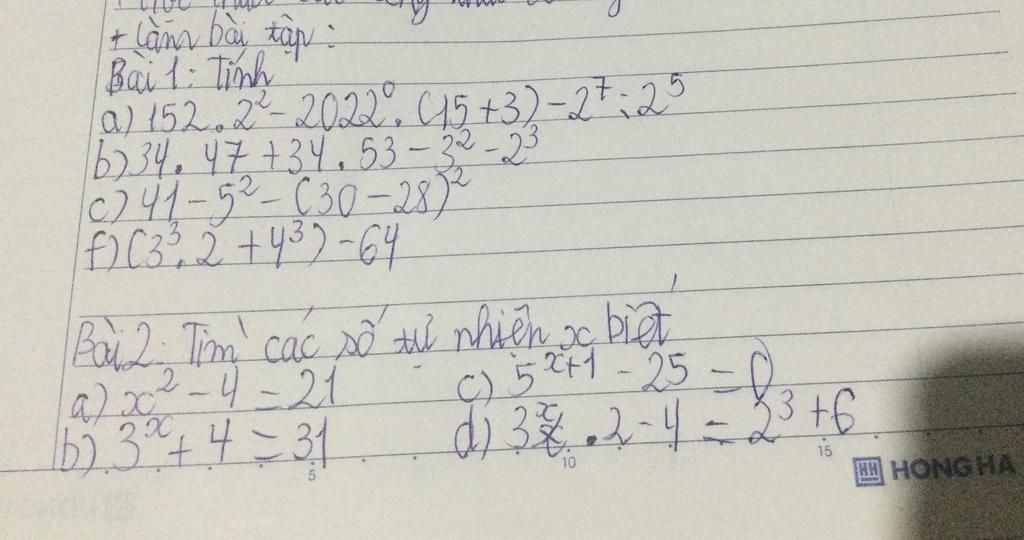 + làm bài tập:
Bài 1: Tính
a) 152 . 2² - 2022⁰ . (15 + 3) - 2⁷ : 2⁵
b) 34 . 47 + 34 . 53 - 3² - 2³
c) 41 - 5² - (30 - 28)²
f) (3³ . 2 + 4³) - 64
Bài 2: Tìm các số tự nhiên x biết
a) x² - 4 = 21 c) 5ˣ⁺¹ - 25 = 0
b) 3ˣ + 4 = 31 d) 3ˣ . 2 - 4 = 2³ + 6
5 10 15
HH HONG HA